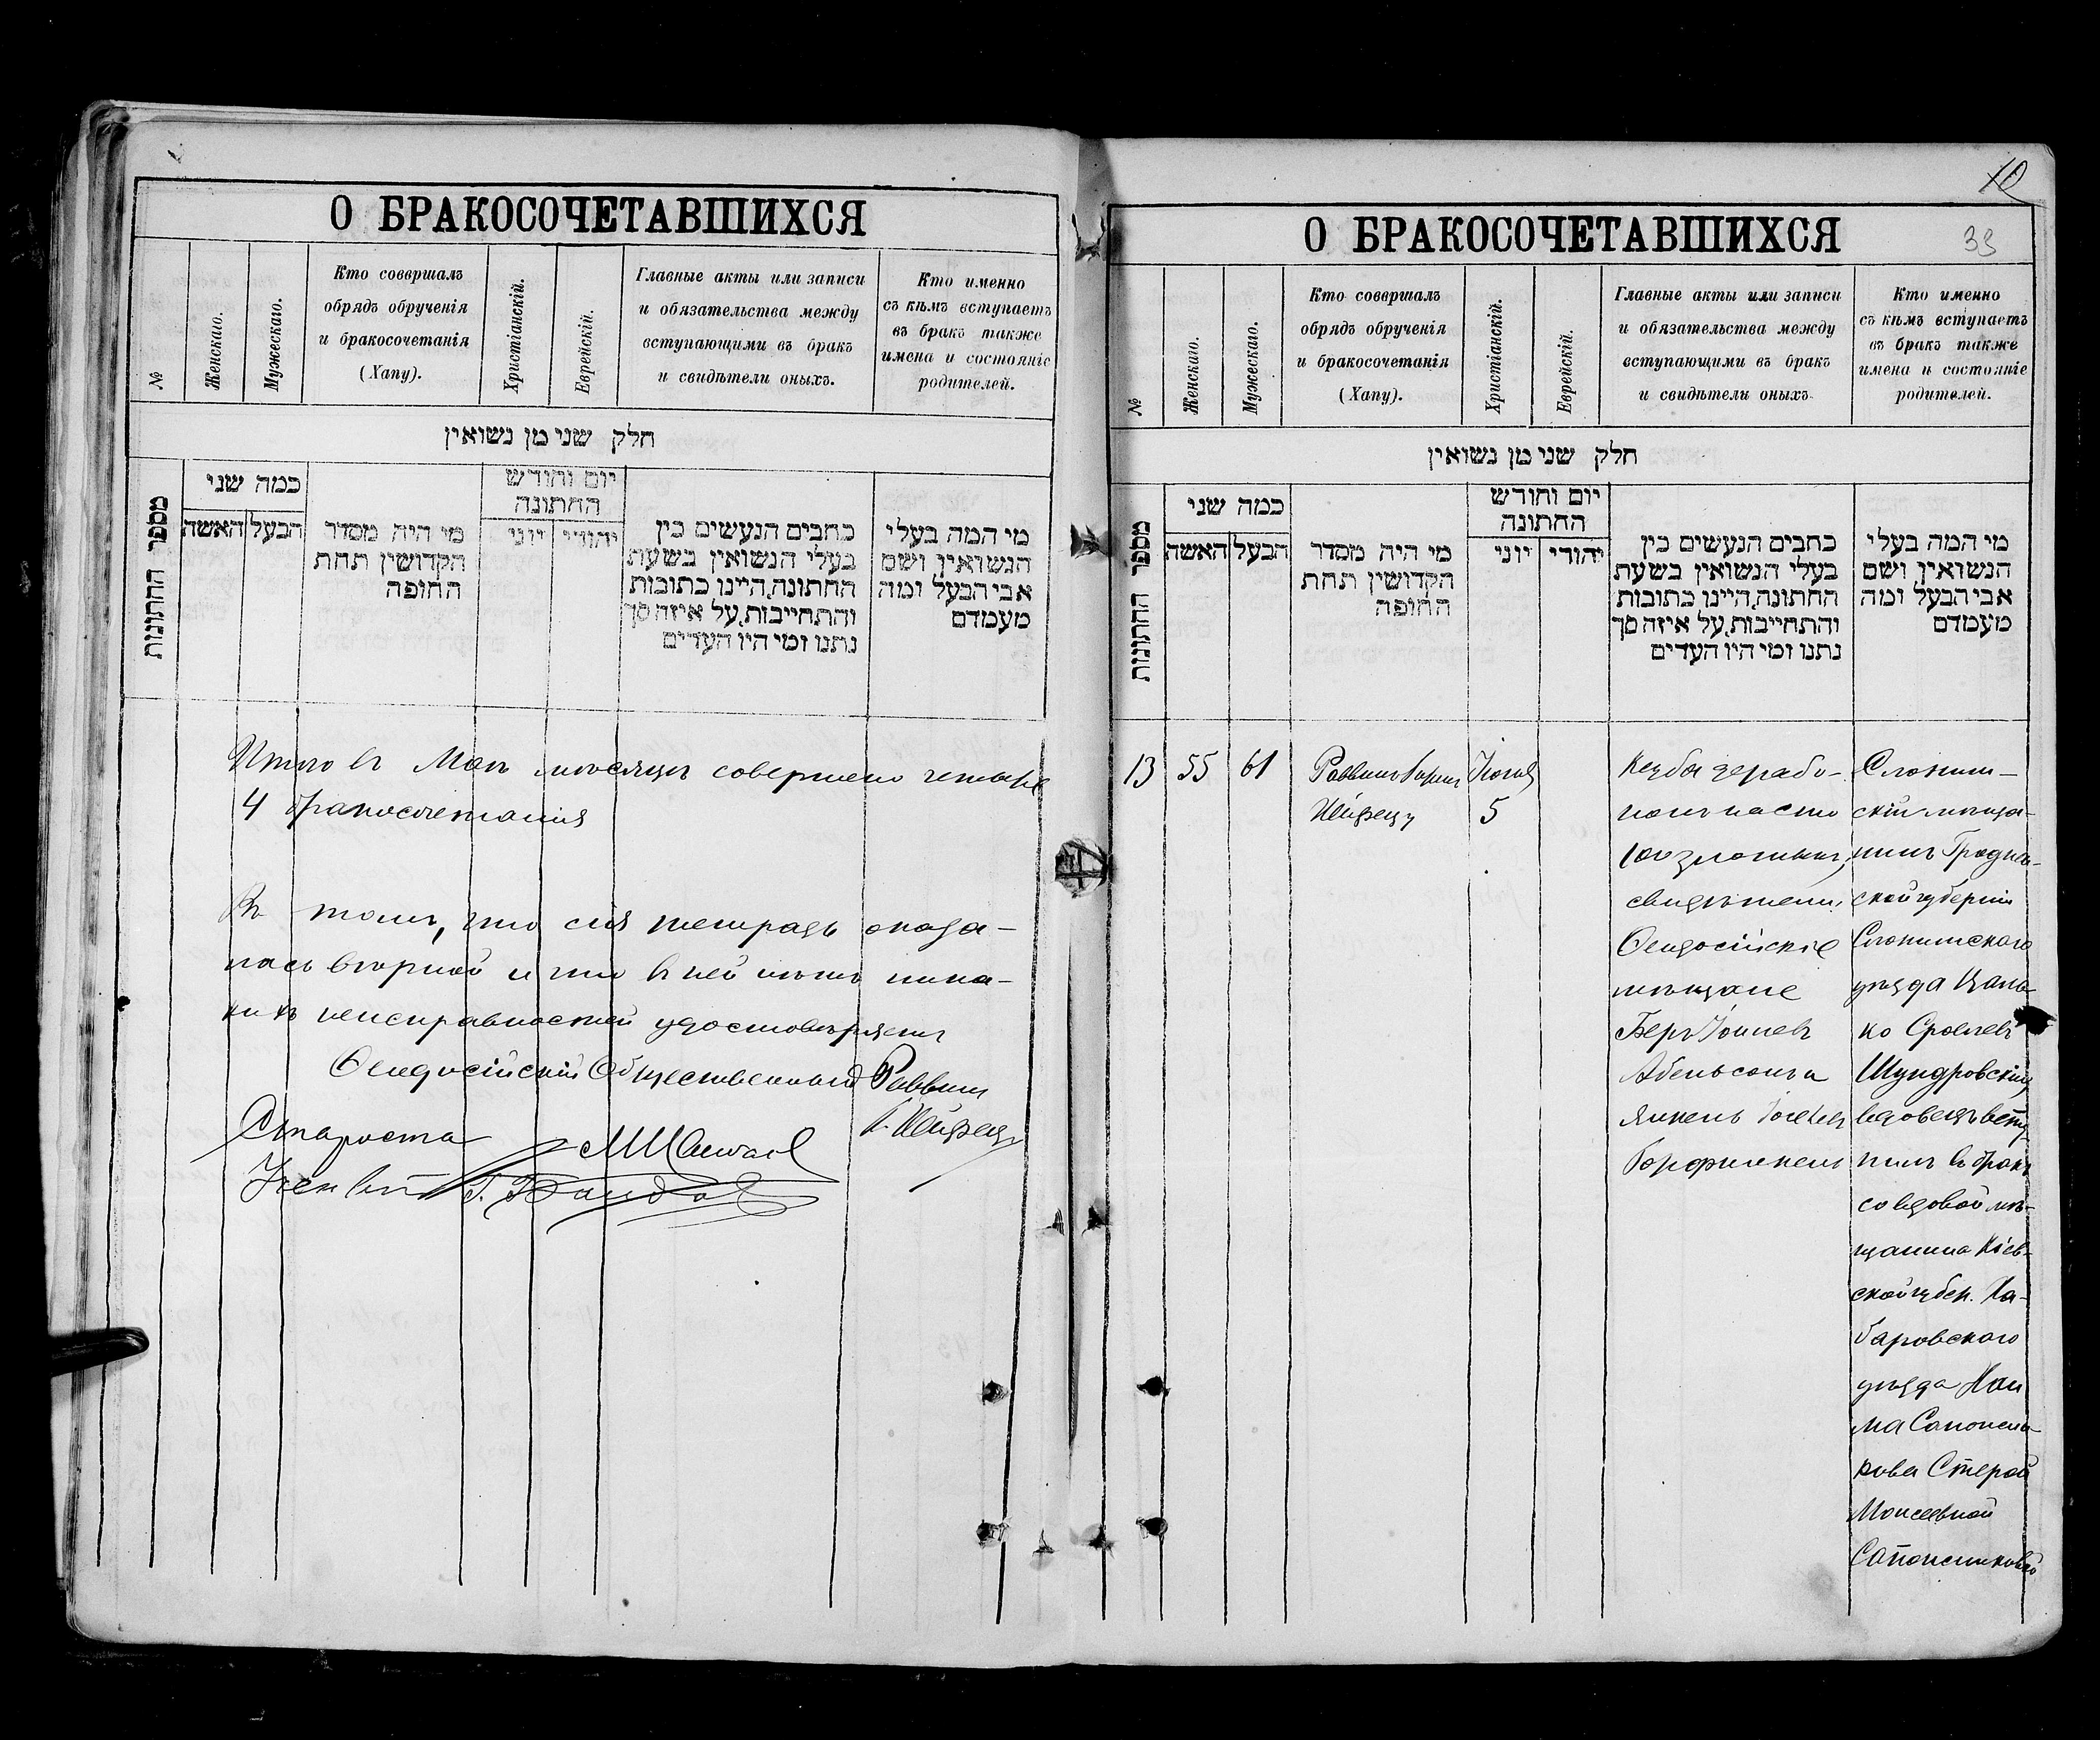 О БРАКОСОЧЕТАВШИХСЯ
№
Женскаго.
Мужескаго.
Кто совершалъ
обрядъ обрученія
и бракосочетанія
(Хапу).
Христіанскій.
Еврейскій.
Главные акты или записи
и обязательства между
вступающими въ бракъ
и свидѣтели оныхъ.
Кто именно
съ кѣмъ вступаетъ
въ бракъ также
имена и состояніе
родителей.
חלק שני מן נשואין
מספר החתונות
כמה שני
הבעל
האשה
מי היה מסדר
הקדושין תחת
החופה
יום וחודש
החתונה
יהודי
יוני
כתבים הנעשים בין
בעלי הנשואין בשעת
החתונה, היינו כתובות
והתחייבות, על איזה סך
נתנו ומי היו העדים
מי המה בעלי
הנשואין ושם
אבי הבעל ומה
מעמדם
Итого въ Маѣ мѣсяцѣ совершено четыре
4 бракосочетанія
Въ томъ, что сія тетрадь оказа-
лась вѣрной и что въ ней нѣтъ ника-
кихъ неисправностей удостовѣряетъ
Ѳеодосійскій Общественный Раввинъ
Староста
10
О БРАКОСОЧЕТАВШИХСЯ
39
№
Женскаго.
Мужескаго.
Кто совершалъ
обрядъ обрученія
и бракосочетанія
(Хапу).
Христіанскій.
Еврейскій.
Главные акты или записи
и обязательства между
вступающими въ бракъ
и свидѣтели оныхъ.
Кто именно
съ кѣмъ вступаетъ
въ бракъ также
имена и состояніе
родителей.
חלק שני מן נשואין
מספר החתונות
כמה שני
הבעל
האשה
מי היה מסדר
הקדושין תחת
החופה
יום וחודש
החתונה
יהודי
יוני
כתבים הנעשים בין
בעלי הנשואין בשעת
החתונה, היינו כתובות
והתחייבות, על איזה סך
נתנו ומי היו העדים
מי המה בעלי
הנשואין ושם
אבי הבעל ומה
מעמדם
13
55
61
Раввинъ
Хейфецъ
Іюня
5
Кецба
на сто
100 злотыхъ,
свидѣтели:
Ѳеодосійскіе
мѣщане
Беръ
Абельсонъ и
Янкель
Слоним-
скій мѣща-
нинъ Гроднен-
ской губерніи
Слонимскаго
уѣзда
Сроелевъ
Шундровскій,
вдовецъ всту-
пилъ въ бракъ
со вдовой мѣ-
щанина Кіев-
ской губер.
уѣзда Хаи
ма Сапожни-
кова Стерой
Моисеевной
Сапожниковой